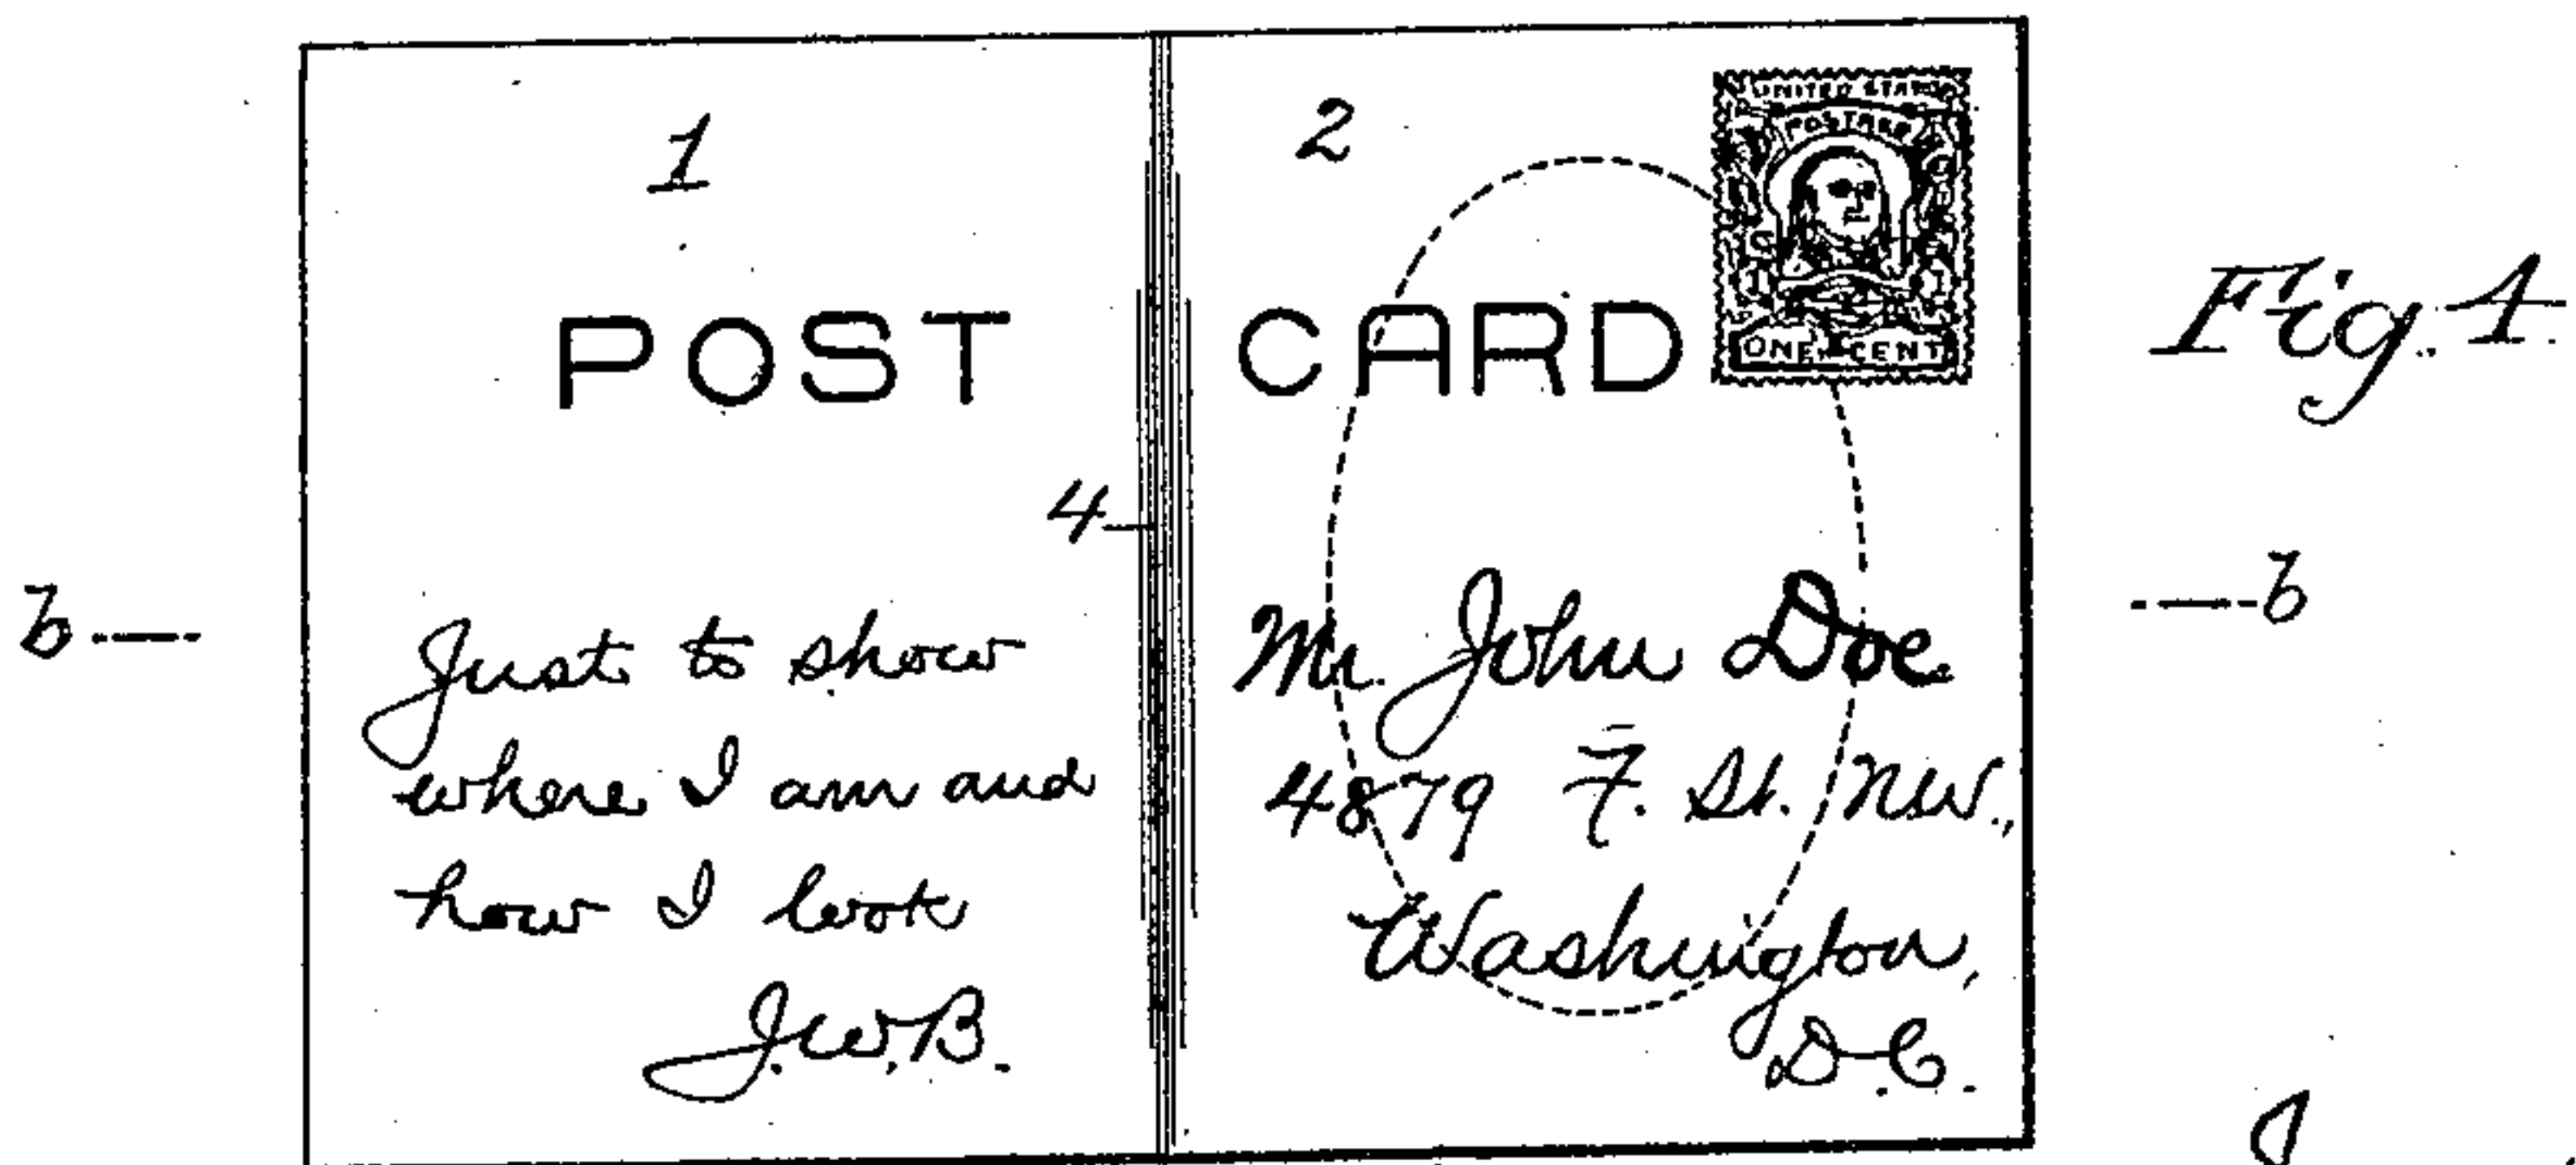 1
2
UNITED STATES
POSTAGE
POST CARD
ONE CENT
Fig. 1.
4
b
b
Just to show
where I am and
how I look
J.W.B.
Mr. John Doe
4879 F. St. NW.,
Washington,
D.C.